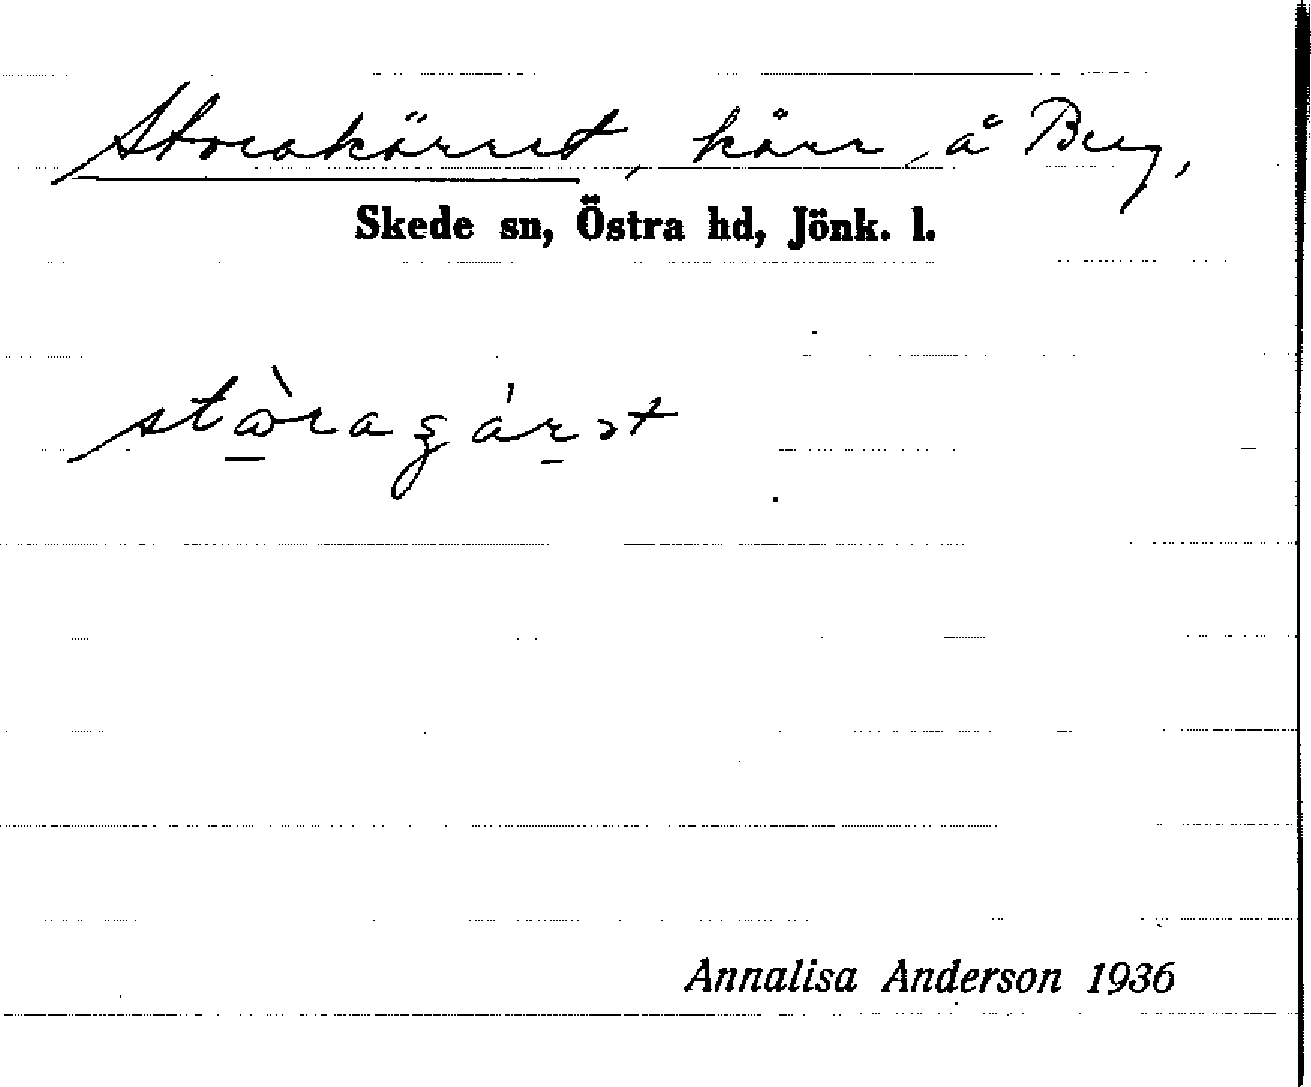 Storakärret, kärr, å Berg,
Skede sn, Östra hd, Jönk. l.
Annalisa Anderson 1936